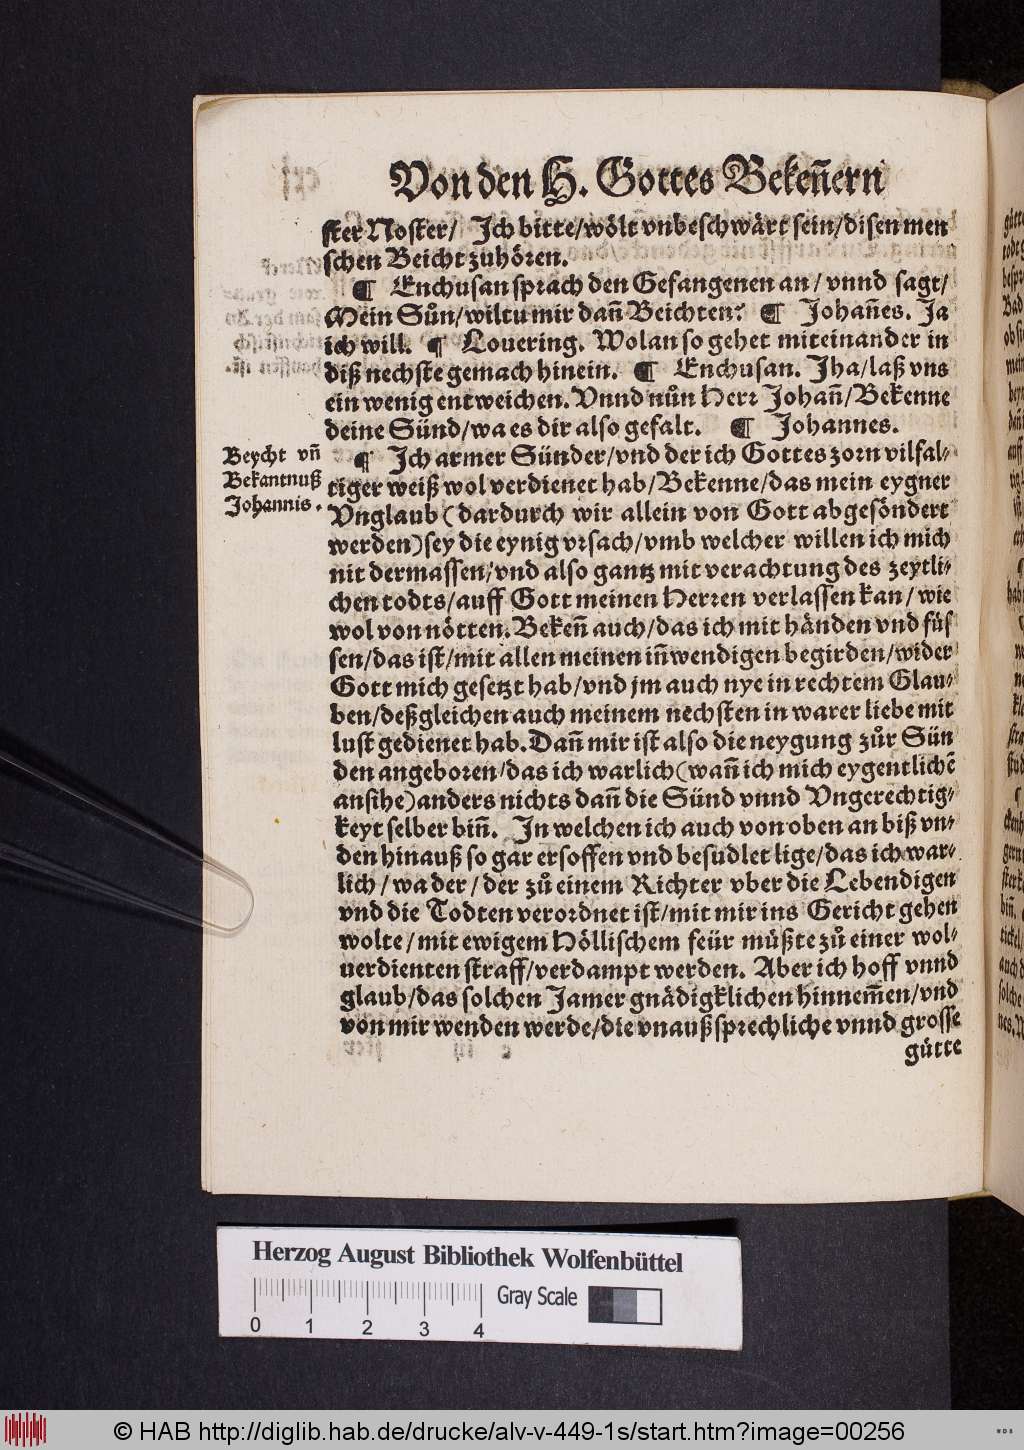 Von den H. Gottes Bekeñern
ster Noster/ Ich bitte/wölt vnbeschwärt sein/disen men
schen Beicht zuhören.
¶ Enchusan sprach den Gefangenen an/ vnnd sagt/
Mein Sůn/wiltu mir dañ Beichten? ¶ Johañes. Ja
ich will. ¶ Louering. Wolan so gehet miteinander in
diß nechste gemach hinein. ¶ Enchusan. Jha/laß vns
ein wenig entweichen. Vnnd nůn Herr Johañ/Bekenne
deine Sünd/wa es dir also gefalt. ¶ Johannes.
Beycht vñ
Bekantnuß
Johannis.
¶ Ich armer Sünder/vnd der ich Gottes zorn vilfal-
tiger weiß wol verdienet hab/Bekenne/das mein eygner
Vnglaub (dardurch wir allein von Gott abgesöndert
werden) sey die eynig vrsach/vmb welcher willen ich mich
nit dermassen/vnd also gantz mit verachtung des zeytli-
chen todts/auff Gott meinen Herren verlassen kan/ wie
wol von nötten. Bekeñ auch/das ich mit händen vnd füs
sen/das ist/mit allen meinen iñwendigen begirden/wider
Gott mich gesetzt hab/vnd jm auch nye in rechtem Glau-
ben/deßgleichen auch meinem nechsten in warer liebe mit
lust gedienet hab. Dañ mir ist also die neygung zůr Sün
den angeboren/das ich warlich (wañ ich mich eygentlichē
ansihe) anders nichts dañ die Sünd vnnd Vngerechtig-
keyt selber biñ. In welchen ich auch von oben an biß vn-
den hinauß so gar ersoffen vnd besudlet lige/das ich war-
lich/wa der/der zů einem Richter vber die Lebendigen
vnd die Todten verordnet ist/mit mir ins Gericht gehen
wolte/mit ewigem Höllischem feür müßte zů einer wol-
uerdienten straff/verdampt werden. Aber ich hoff vnnd
glaub/das solchen Jamer gnädigklichen hinnem̃en/vnd
von mir wenden werde/die vnaußsprechliche vnnd grosse
gütte
Herzog August Bibliothek Wolfenbüttel
Gray Scale
0 1 2 3 4
© HAB http://diglib.hab.de/drucke/alv-v-449-1s/start.htm?image=00256